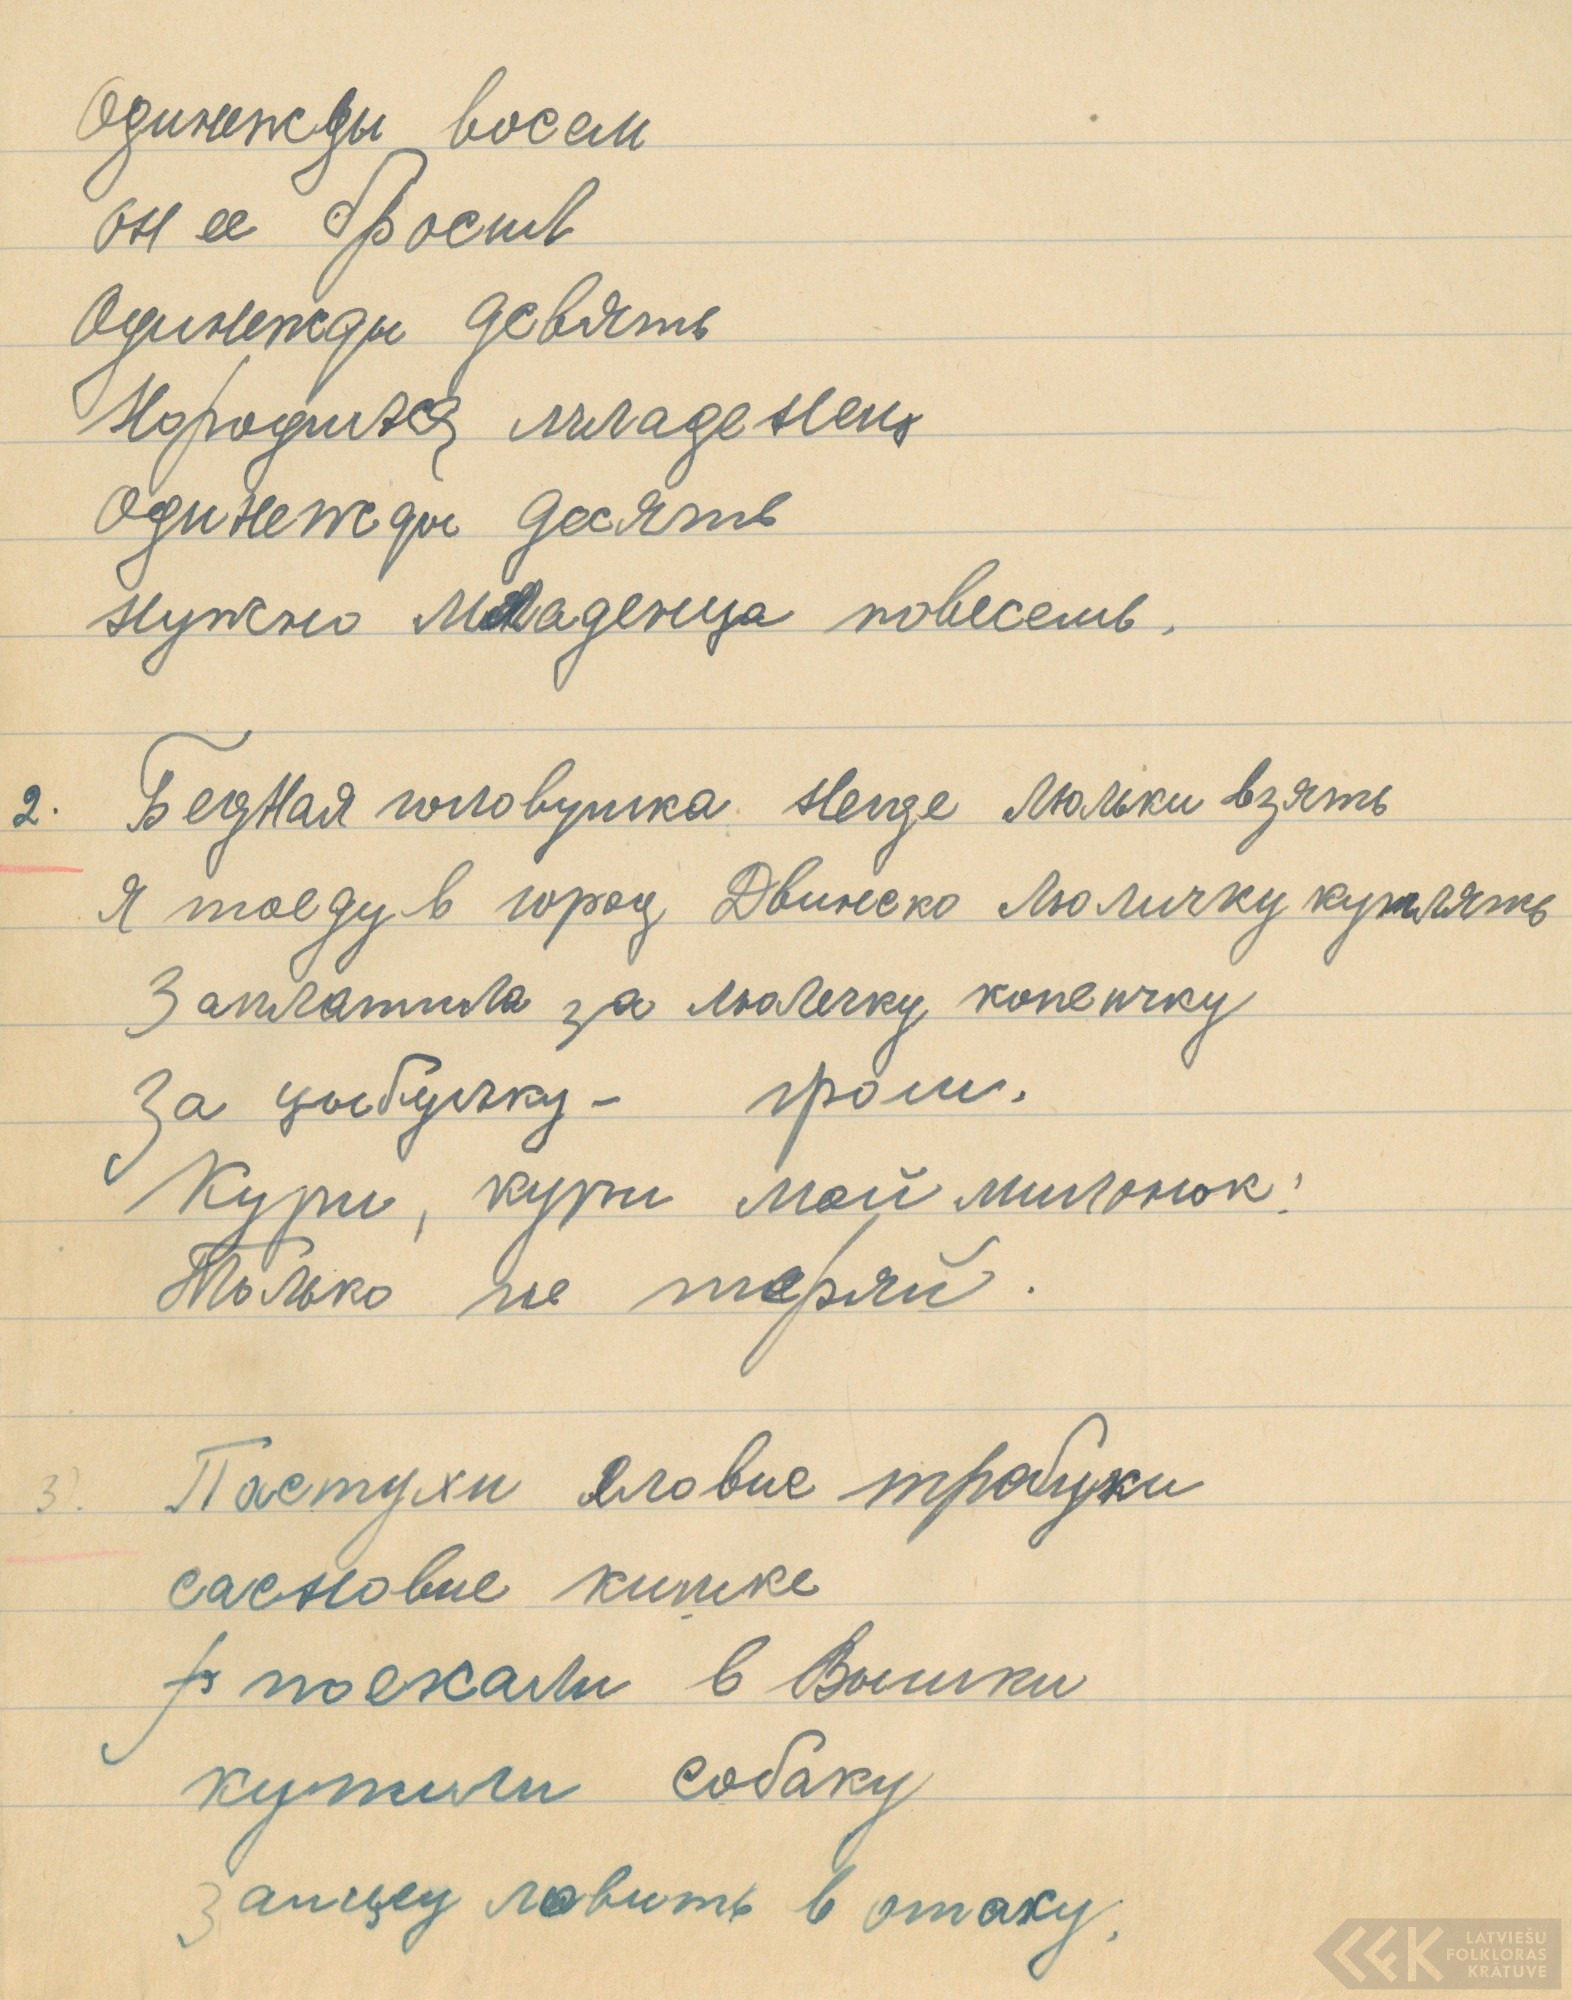 Одинежды восем
он ее бросил
Одинежды девять
Народился младенец
Одинежды десять
нужно младенца повесеть.
2. Бедная головушка негде люльки взять
Я поеду в город Двинско люличку куплять
Заплатила за люлечку копеичку
За цыбучку – грош.
Кури, кури мой милонок!
Только не теряй.
3). Пастухи еловие трабуки
сасновие кишке
поехали в Вышки
купили собаку
заицеу ловить в отаку.
LATVIEŠU
FOLKLORAS
KRĀTUVE